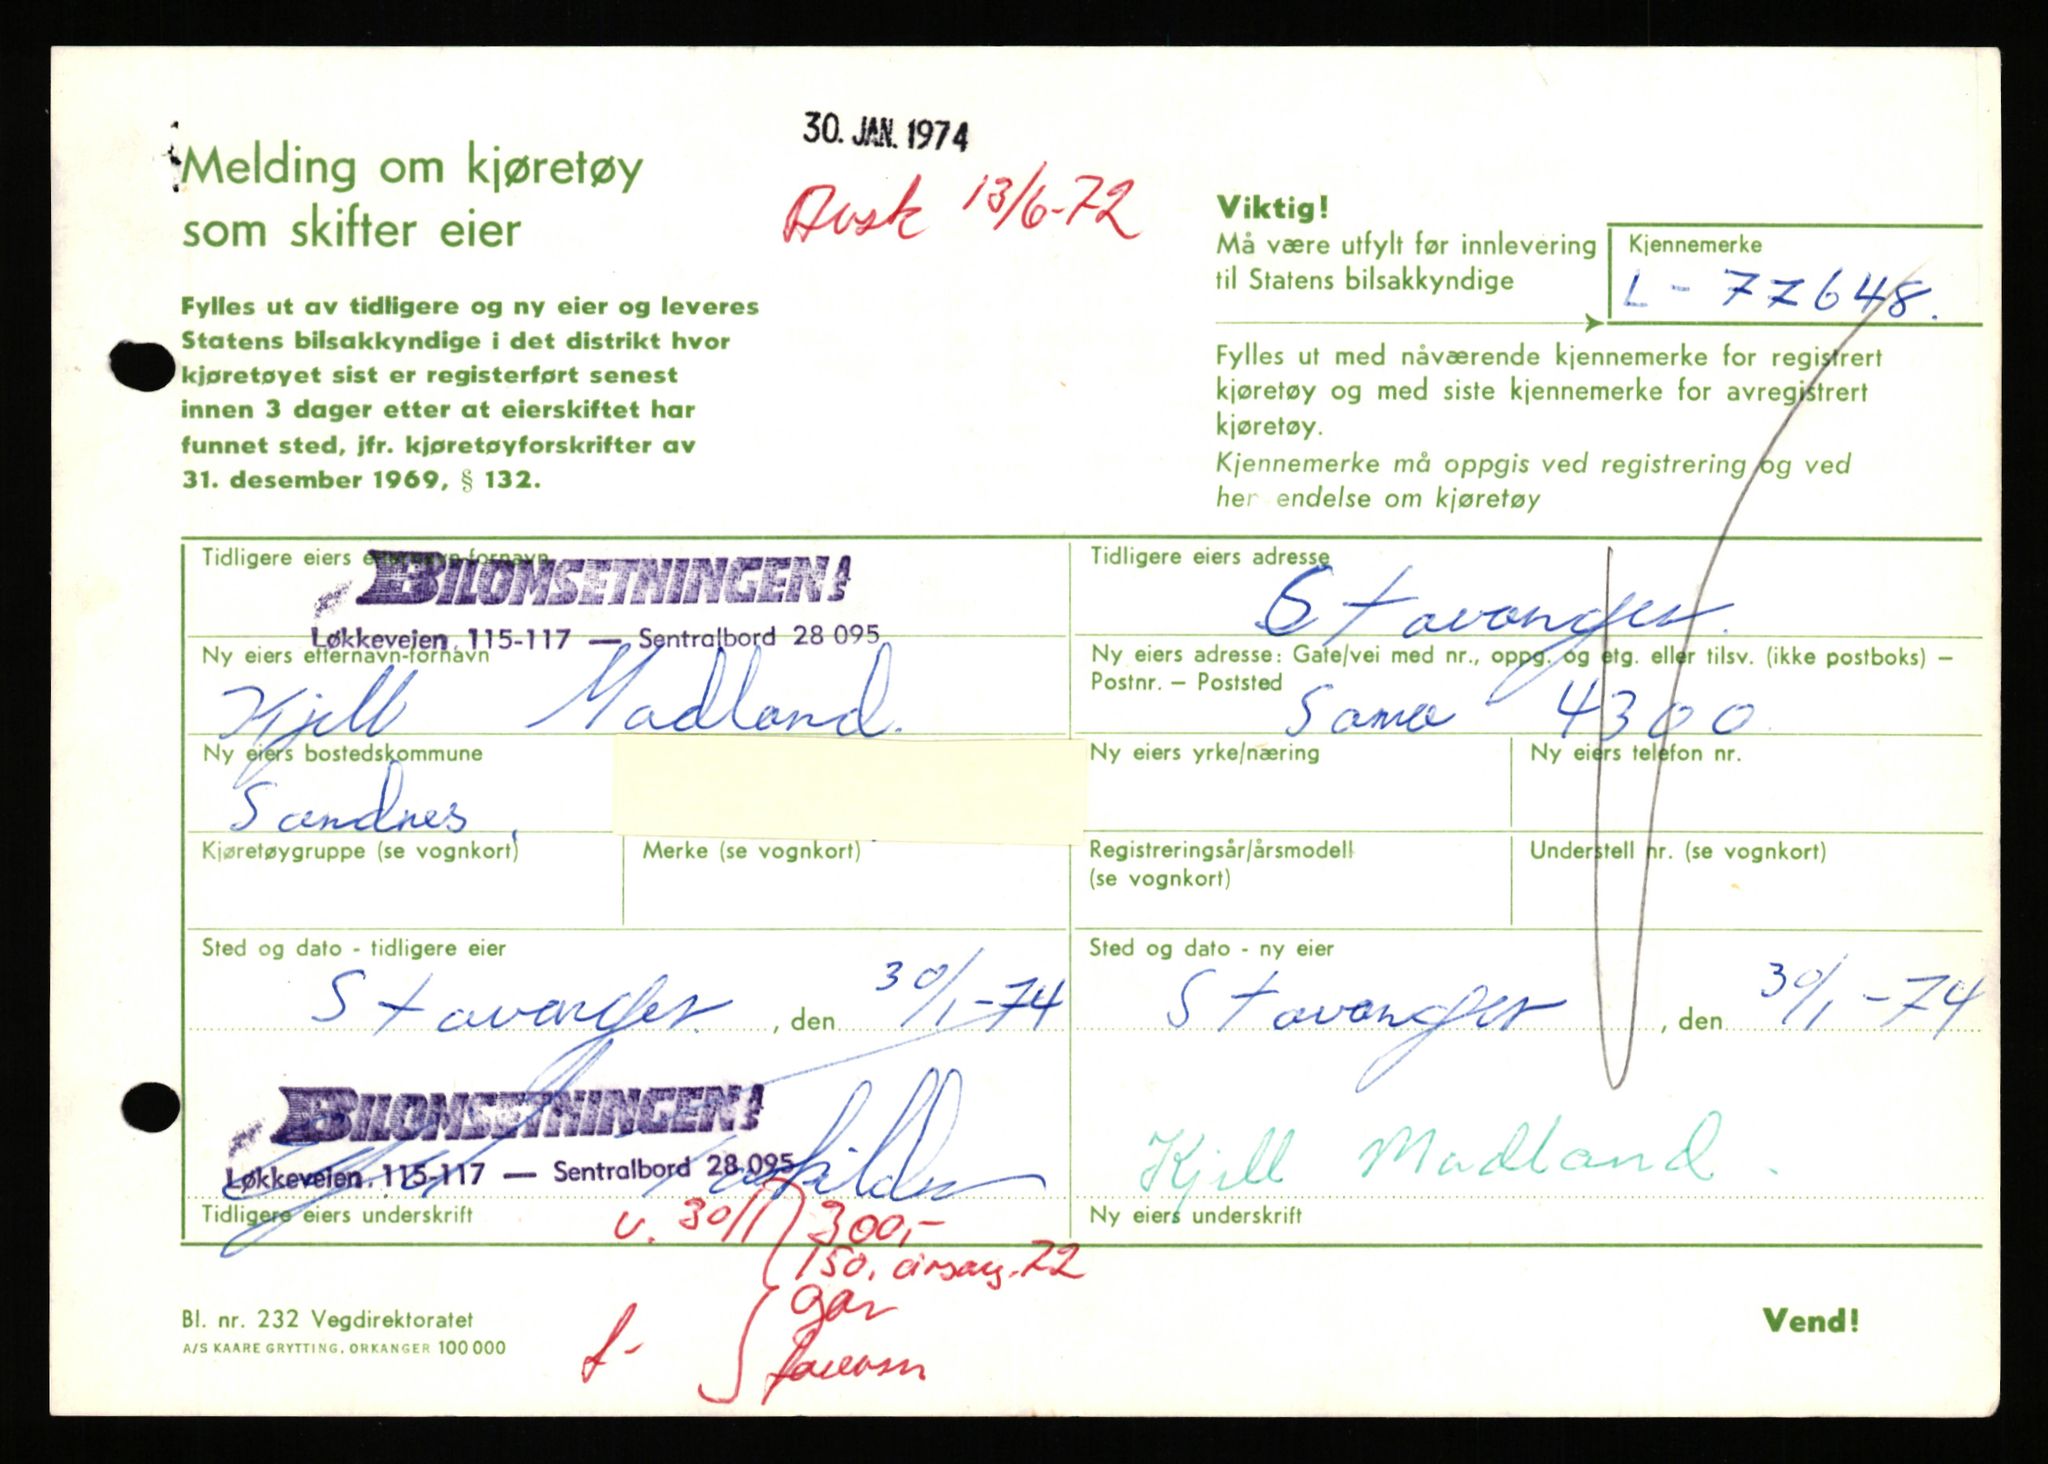 30. JAN. 1974
Avsk 13/6-72
Melding om kjøretøy
som skifter eier
Fylles ut av tidligere og ny eier og leveres
Statens bilsakkyndige i det distrikt hvor
kjøretøyet sist er registerført senest
innen 3 dager etter at eierskiftet har
funnet sted, jfr. kjøretøyforskrifter av
31. desember 1969, § 132.
Viktig!
Må være utfylt før innlevering
til Statens bilsakkyndige
Kjennemerke
L - 77648.
Fylles ut med nåværende kjennemerke for registrert
kjøretøy og med siste kjennemerke for avregistrert
kjøretøy.
Kjennemerke må oppgis ved registrering og ved
her endelse om kjøretøy
Tidligere eiers etternavn-fornavn
BILOMSETNINGEN A/S
Løkkeveien 115-117 — Sentralbord 28 095
Tidligere eiers adresse
Stavanger.
Ny eiers etternavn-fornavn
Kjell Madland.
Ny eiers adresse: Gate/vei med nr., oppg. og etg. eller tilsv. (ikke postboks) –
Postnr. – Poststed
4300
Ny eiers bostedskommune
Sandnes
Ny eiers yrke/næring
Ny eiers telefon nr.
Kjøretøygruppe (se vognkort)
Merke (se vognkort)
Registreringsår/årsmodell
(se vognkort)
Understell nr. (se vognkort)
Sted og dato - tidligere eier
Stavanger , den 30/1-74
Sted og dato - ny eier
Stavanger , den 30/1-74
BILOMSETNINGEN A/S
Løkkeveien 115-117 — Sentralbord 28 095
Tidligere eiers underskrift
Kjell Madland.
Ny eiers underskrift
v. 30/1 300,-
150, årsavg. 72
Bl. nr. 232 Vegdirektoratet
A/S KAARE GRYTTING, ORKANGER 100 000
Vend!